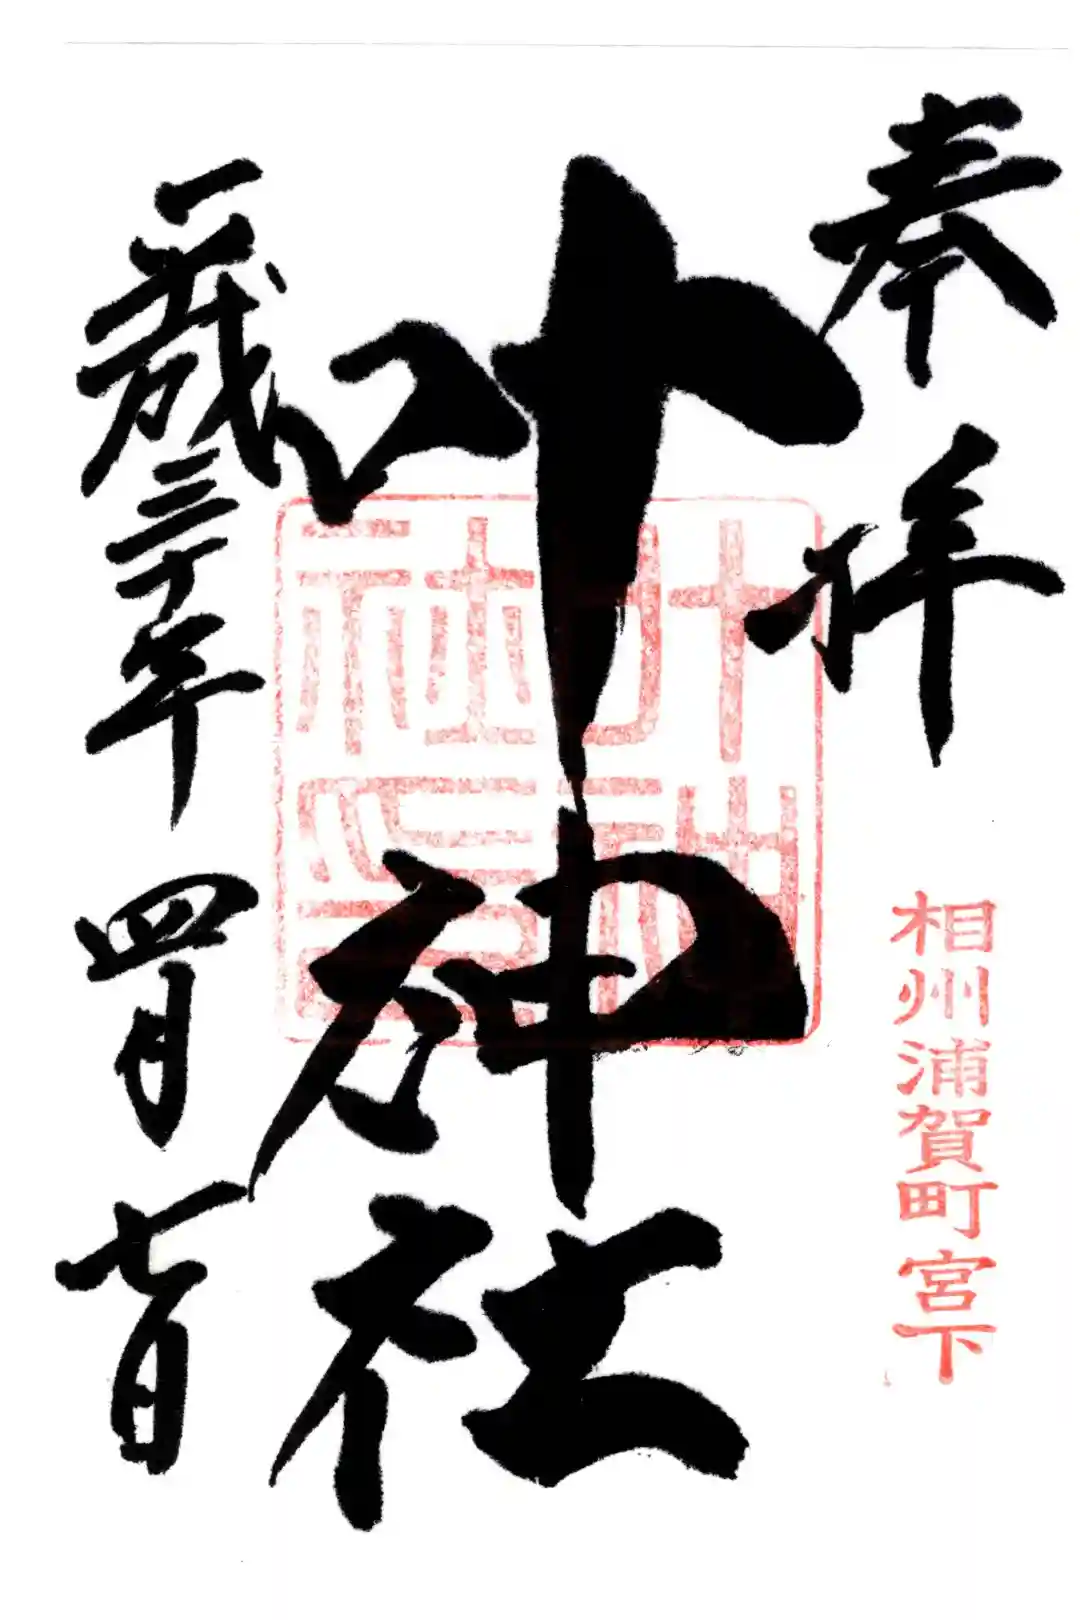 奉拝
相州浦賀町宮下
叶神社
叶神社印
平成三十年四月七日